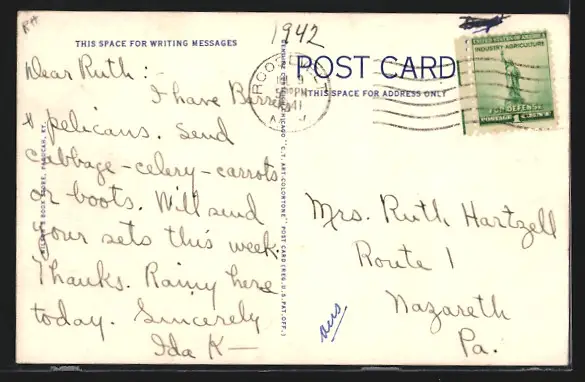 RH
THIS SPACE FOR WRITING MESSAGES
Dear Ruth:
I have
& pelicans. Send
cabbage - celery - carrots
or boots. Will send
your sets this week.
Thanks. Rainy here
today. Sincerely
Ida K—
BOOK STORE, PADUCAH, KY.
CHICAGO "C.T. ART-COLORTONE" POST CARD (REG. U.S. PAT. OFF.)
1942
POST CARD
THIS SPACE FOR ADDRESS ONLY
PM
UNITED STATES OF AMERICA
INDUSTRY AGRICULTURE
FOR DEFENSE
POSTAGE 1 CENT
Mrs. Ruth Hartzell
Route 1
Nazareth
Pa.